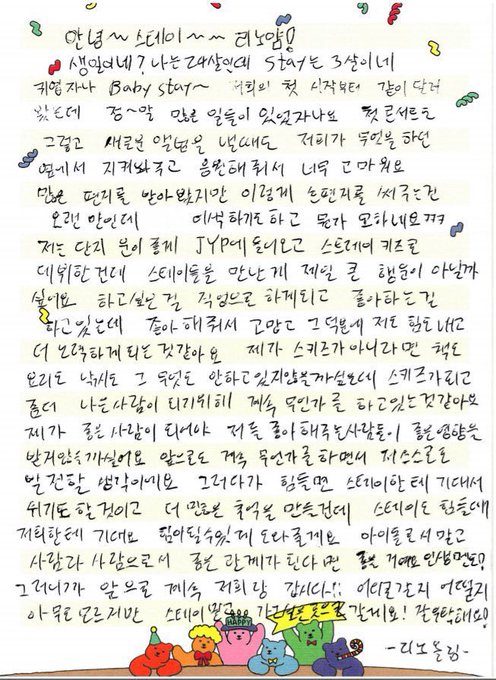 안녕~ 스테이~ 리노얌!
생일이네? 나는 24살인데 stay는 3살이네
귀엽자나 Baby stay~ 저희의 첫 시작부터 같이 달려
왔는데 정~말 많은 일들이 있었자나요 첫 콘서트도
그렇고 새로운 앨범을 낼때도 저희가 무언을 하던
옆에서 지켜봐주고 응원해줘서 너무 고마워요
많은 편지를 받아 봤지만 이렇게 손편지를 써주는건
오랜만인데 어색하기도하고 뭔가 묘하네요ㅋㅋ
저는 단지 운이 좋게 JYP에 들어오고 스트레이 키즈로
데뷔한건데 스테이들을 만난게 제일 큰 행운이 아닐까
싶어요 하고싶은걸 직업으로 하게되고 좋아하는걸
하고있는데 좋아해줘서 고맙고 그덕분에 저도 힘도내고
더 노력하게 되는것같아요 제가 스키즈가 아니라면 책도
요리도 낚시도 그 무엇도 안하고있지않을까싶은데 스키즈가되고
좀더 나은사람이 되기위해 계속 무언가를 하고있는것같아요
제가 좋은 사람이 되어야 저를 좋아해주는사람들이 좋은영향을
받지않을까싶어요 앞으로도 계속 무언가를 하면서 저스스로도
발전할 생각이에요 그러다가 힘들면 스테이한테 기대서
쉬기도 할것이고 더 많은 추억을 만들건데 스테이도 힘들때
저희한테 기대요 힘이될수있게 도와줄게요 아이돌로서 말고
사람과 사람으로서 좋은 관계가 된다면 좋은 거에요 인생면도!
그러니까 앞으로 계속 저희랑 갑시다!! 어디로갈지 어떨지
아무도 모르지만 스테이 갈게요! 잘부탁해요!
HAPPY
-리노올림-